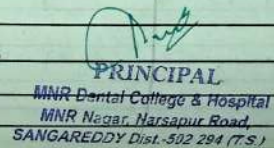 PRINCIPAL
MNR Dental College & Hospital
MNR Nagar, Narsapur Road,
SANGAREDDY Dist.-502 294 (T.S.)